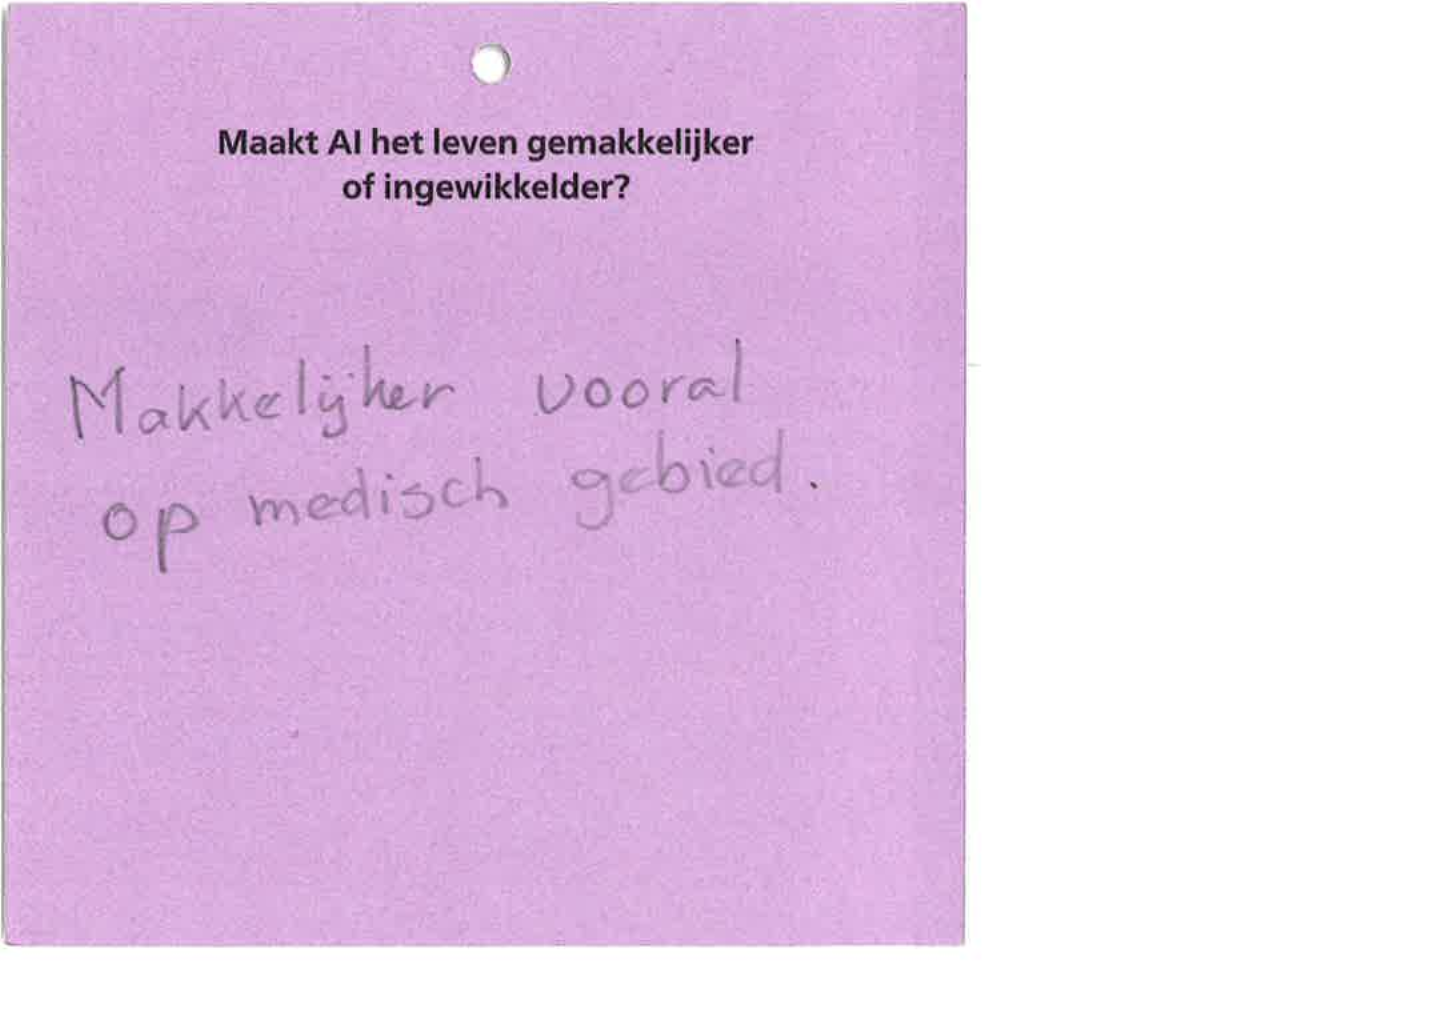 Maakt AI het leven gemakkelijker
of ingewikkelder?
Makkelijker vooral
op medisch gebied.